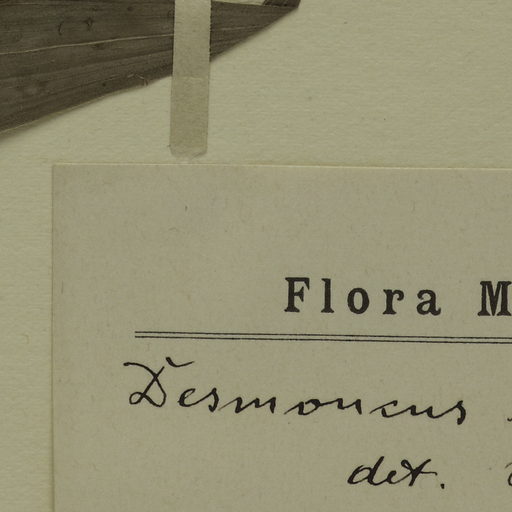 Flora
Desmoncus
det.